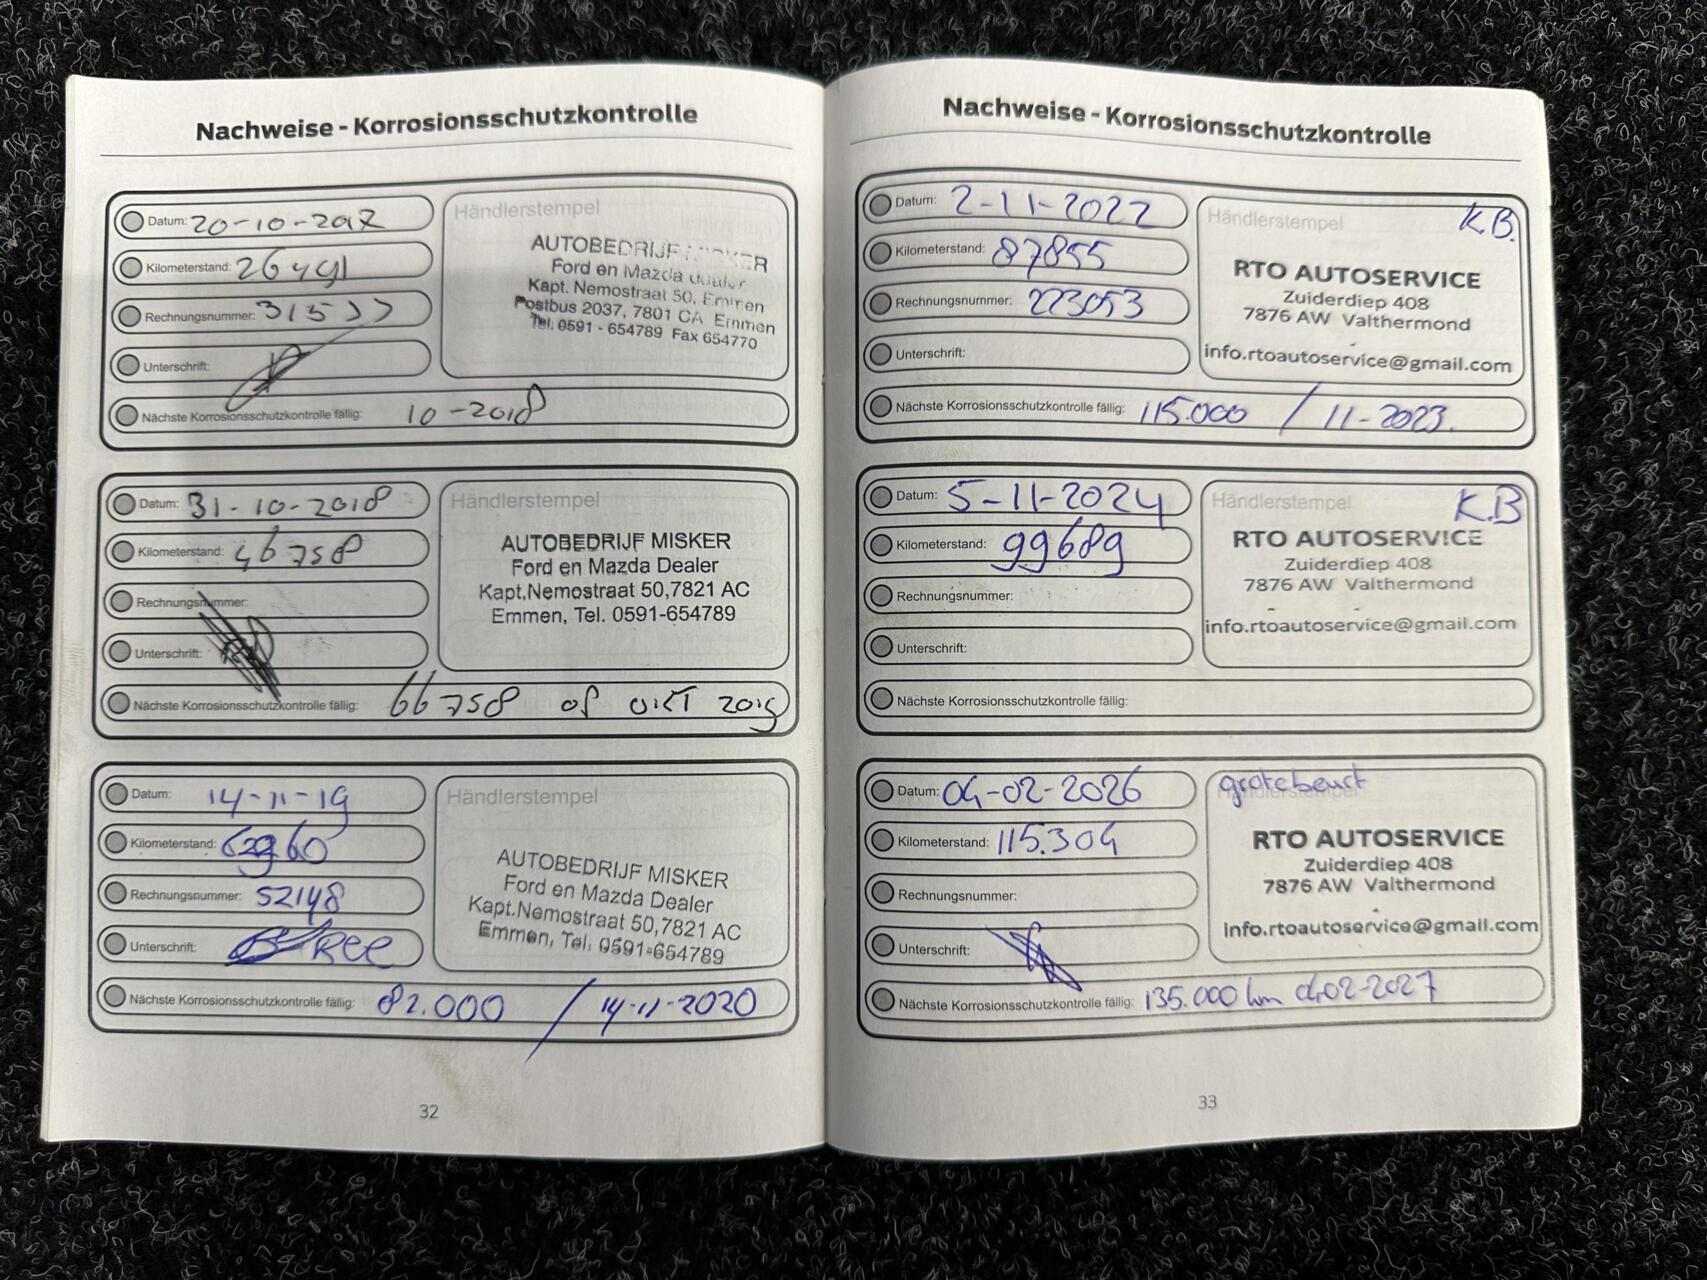 Nachweise - Korrosionsschutzkontrolle
Datum: 20-10-2017
Kilometerstand: 26491
Rechnungsnummer:
Unterschrift:
Nächste Korrosionsschutzkontrolle fällig: 10-2018
Händlerstempel
AUTOBEDRIJF MISKER
Ford en Mazda dealer
Kapt. Nemostraat 50, Emmen
Postbus 2037, 7801 CA Emmen
Tel. 0591 - 654789 Fax 654770
Datum: 31-10-2018
Kilometerstand: 46758
Rechnungsnummer:
Unterschrift:
Nächste Korrosionsschutzkontrolle fällig: 66758 of okt 2019
Händlerstempel
AUTOBEDRIJF MISKER
Ford en Mazda Dealer
Kapt.Nemostraat 50,7821 AC
Emmen, Tel. 0591-654789
Datum: 14-11-19
Kilometerstand:
Rechnungsnummer: 52148
Unterschrift:
Nächste Korrosionsschutzkontrolle fällig: 82.000 / 14-11-2020
Händlerstempel
AUTOBEDRIJF MISKER
Ford en Mazda Dealer
Kapt.Nemostraat 50,7821 AC
Emmen, Tel. 0591-654789
32
Nachweise - Korrosionsschutzkontrolle
Datum: 2-11-2022
Kilometerstand: 87855
Rechnungsnummer: 223053
Unterschrift:
Nächste Korrosionsschutzkontrolle fällig: 115.000 / 11-2023.
Händlerstempel K.B.
RTO AUTOSERVICE
Zuiderdiep 408
7876 AW Valthermond
info.rtoautoservice@gmail.com
Datum: 5-11-2024
Kilometerstand: 99689
Rechnungsnummer:
Unterschrift:
Nächste Korrosionsschutzkontrolle fällig:
Händlerstempel K.B
RTO AUTOSERVICE
Zuiderdiep 408
7876 AW Valthermond
info.rtoautoservice@gmail.com
Datum: 04-02-2026
Kilometerstand: 115.304
Rechnungsnummer:
Unterschrift:
Nächste Korrosionsschutzkontrolle fällig: 135.000 km 04-02-2027
grote beurt
Händlerstempel
RTO AUTOSERVICE
Zuiderdiep 408
7876 AW Valthermond
info.rtoautoservice@gmail.com
33